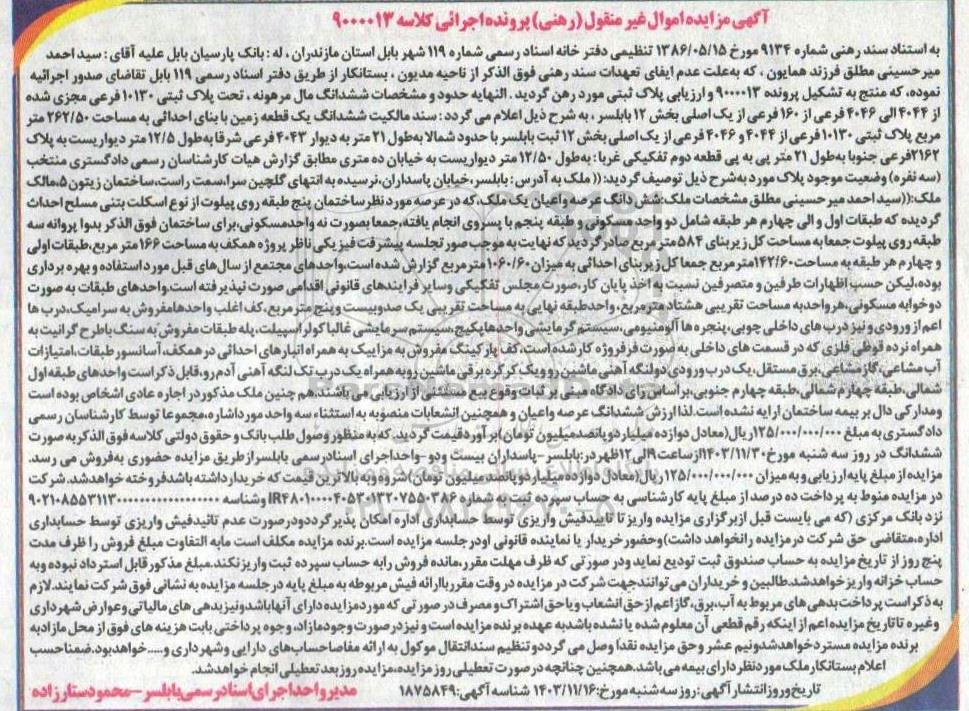 آگهی مزایده اموال غیر منقول (رهنی) پرونده اجرائی کلاسه ۹۰۰۰۰۱۳
به استناد سند رهنی شماره ۹۱۳۴ مورخ ۱۳۸۶/۰۵/۱۵ تنظیمی دفتر خانه اسناد رسمی شماره ۱۱۹ شهر بابل استان مازندران ، له : بانک پارسیان بابل علیه آقای : سید احمد
میرحسینی مطلق فرزند همایون ، که به‌علت عدم ایفای تعهدات سند رهنی فوق الذکر از ناحیه مدیون ، بستانکار از طریق دفتر اسناد رسمی ۱۱۹ بابل تقاضای صدور اجرائیه
نموده، که منتج به تشکیل پرونده ۹۰۰۰۰۱۳ و ارزیابی پلاک ثبتی مورد رهن گردید . النهایه حدود و مشخصات ششدانگ مال مرهونه ، تحت پلاک ثبتی ۱۰۱۳۰ فرعی مجزی شده
از ۴۰۴۴ الی ۴۰۴۶ فرعی از ۱۶۰ فرعی از یک اصلی بخش ۱۲ بابلسر ، به شرح ذیل اعلام می گردد : سند مالکیت ششدانگ یک قطعه زمین با بنای احداثی به مساحت ۲۶۲/۵۰ متر
مربع پلاک ثبتی ۱۰۱۳۰ فرعی از ۴۰۴۴ و ۴۰۴۶ فرعی از یک اصلی بخش ۱۲ ثبت بابلسر با حدود شمالا به‌طول ۲۱ متر به دیوار ۴۰۴۳ فرعی شرقا به‌طول ۱۲/۵ متر دیواریست به پلاک
۲۱۶۲فرعی جنوبا به‌طول ۲۱ متر پی به پی قطعه دوم تفکیکی غربا: به‌طول ۱۲/۵۰ متر دیواریست به خیابان ده متری مطابق گزارش هیات کارشناسان رسمی دادگستری منتخب
(سه نفره) وضعیت موجود پلاک مورد به‌شرح ذیل توصیف گردید:(( ملک به آدرس : بابلسر،خیابان پاسداران،نرسیده به انتهای گلچین سرا،سمت راست،ساختمان زیتون۵،مالک
ملک:((سید احمد میر حسینی مطلق مشخصات ملک:شش دانگ عرصه واعیان یک ملک،که در عرصه مورد نظر ساختمان پنج طبقه روی پیلوت از نوع اسکلت بتنی مسلح احداث
گردیده که طبقات اول و الی چهارم هر طبقه شامل دو واحد مسکونی و طبقه پنجم با پسروی انجام یافته،جمعا بصورت نه واحدمسکونی،برای ساختمان فوق الذکر بدوا پروانه سه
طبقه روی پیلوت جمعا به مساحت کل زیربنای ۵۸۴ متر مربع صادر گردید که نهایت به موجب صورتجلسه پیشرفت فیزیکی ناظر پروژه همکف به مساحت ۱۶۶ متر مربع،طبقات اولی
و چهارم هر طبقه به مساحت ۱۴۲/۶۰مترمربع جمعا کل زیربنای احداثی به میزان ۱۰۶۰/۶۰مترمربع گزارش شده است،واحدهای مجتمع از سال‌های قبل مورد استفاده و بهره برداری
بوده،لیکن حسب اظهارات طرفین و متصرفین نسبت به اخذ پایان کار،صورت مجلس تفکیکی وسایر فرایندهای قانونی اقدامی صورت نپذیرفته است.واحدهای طبقات به صورت
دوخوابه مسکونی،هرواحد به مساحت تقریبی هشتاد مترمربع، واحدطبقه نهایی به مساحت تقریبی یک صدوبیست وپنج متر مربع،کف اغلب واحدهامفروش به سرامیک،درب ها
اعم از ورودی و نیز درب های داخلی چوبی،پنجره ها آلومنیومی،سیستم گرمایشی واحدهاپکیج،سیستم سرمایشی غالبا کولر اسپیلت،پله طبقات مفروش به سنگ باطرح گرانیت به
همراه نرده قوطی فلزی که در قسمت های داخلی به صورت فرفروژه کار شده است،کف پارکینگ مفروش به مزاییک به همراه انبارهای احداثی در همکف،آسانسور طبقات،امتیازات
آب مشاعی،گازمشاعی،برق مستقل،یک درب ورودی دولنگه آهنی ماشین رو ویک کرکره برقی ماشین روبه همراه یک درب تک لنگه آهنی آدم رو،قابل ذکراست واحدهای طبقه اول
شمالی،طبقه چهارم شمالی،طبقه چهارم جنوبی،براساس رای دادگاه مبنی بر ثبات وقوع بیع مستثنی از ارزیابی می باشند،هم چنین ملک مذکور در اجاره عادی اشخاص بوده است
ومدارکی دال بر بیمه ساختمان ارایه نشده است.لذا ارزش ششدانگ عرصه واعیان و همچنین انشعابات منصوبه به استثناء سه واحد مورد اشاره،مجموعا توسط کارشناسان رسمی
دادگستری به مبلغ ۱۲۵/۰۰۰/۰۰۰/۰۰۰ریال(معادل دوازده میلیارد و پانصد میلیون تومان)بر آورد قیمت گردید. که به منظور وصول طلب بانک و حقوق دولتی کلاسه فوق الذکر به صورت
ششدانگ در روز سه شنبه مورخ۱۴۰۳/۱۱/۳۰ازساعت۹الی۱۲ظهردر:بابلسر-پاسداران بیست ودو -واحداجرای اسنادرسمی بابلسر از طریق مزایده حضوری به‌فروش می رسد.
مزایده از مبلغ پایه ارزیابی وبه میزان ۱۲۵/۰۰۰/۰۰۰/۰۰۰ریال(معادل دوازده میلیاردوپانصد میلیون تومان)شروع وبه بالاترین قیمت که خریدار داشته باشدفروخته خواهدشد. شرکت
در مزایده منوط به پرداخت ده درصد از مبلغ پایه کارشناسی به حساب سپرده ثبت به شماره
نزد بانک مرکزی (که می بایست قبل ازبرگزاری مزایده واریز تا تاییدفیش واریزی توسط حسابداری اداره امکان پذیر گرددودرصورت عدم تائیدفیش واریزی توسط حسابداری
اداره،متقاضی حق شرکت در مزایده رانخواهد داشت)وحضورخریدار یا نماینده قانونی اودرجلسه مزایده است.برنده مزایده مکلف است مابه التفاوت مبلغ فروش را ظرف مدت
پنج روز از تاریخ مزایده به حساب صندوق ثبت تودیع نماید ودر صورتی که ظرف مهلت مقرر،مانده فروش رابه حساب سپرده ثبت واریزنکند.مبلغ مذکورقابل استرداد نبوده وبه
حساب خزانه واریز خواهدشد.طالبین و خریداران می‌توانند جهت شرکت در مزایده در وقت مقرر باارائه فیش مربوطه به مبلغ پایه در جلسه مزایده به نشانی فوق شرکت نمایند. لازم
به ذکر است پرداخت بدهی های مربوط به آب،برق،گاز اعم از حق انشعاب ویاحق اشتراک و مصرف در صورتی که مورد مزایده دارای آنهاباشدونیزبدهی های مالیاتی وعوارض شهرداری
وغیره تاتاریخ مزایده اعم از اینکه رقم قطعی آن معلوم شده یا نشده باشدبه عهده برنده مزایده است و نیز در صورت وجودمازاد، وجوه پرداختی بابت هزینه های فوق از محل مازادبه
برنده مزایده مستردخواهدشدونیم عشر وحق مزایده نقداً وصل می گرددو تنظیم سندانتقال موکول به ارائه مفاصاحساب‌های دارایی وشهرداری و.....خواهدبود.ضمناحسب
اعلام بستانکار ملک مورد نظر دارای بیمه می باشد.همچنین چنانچه در صورت تعطیلی روز مزایده،مزایده روز بعد تعطیلی انجام خواهدشد.
تاریخ وروز انتشار آگهی:روز سه شنبه مورخ:۱۴۰۳/۱۱/۱۶ شناسه آگهی:۱۸۷۵۸۴۹
مدیر واحد اجرای اسناد رسمی بابلسر – محمود ستار زاده